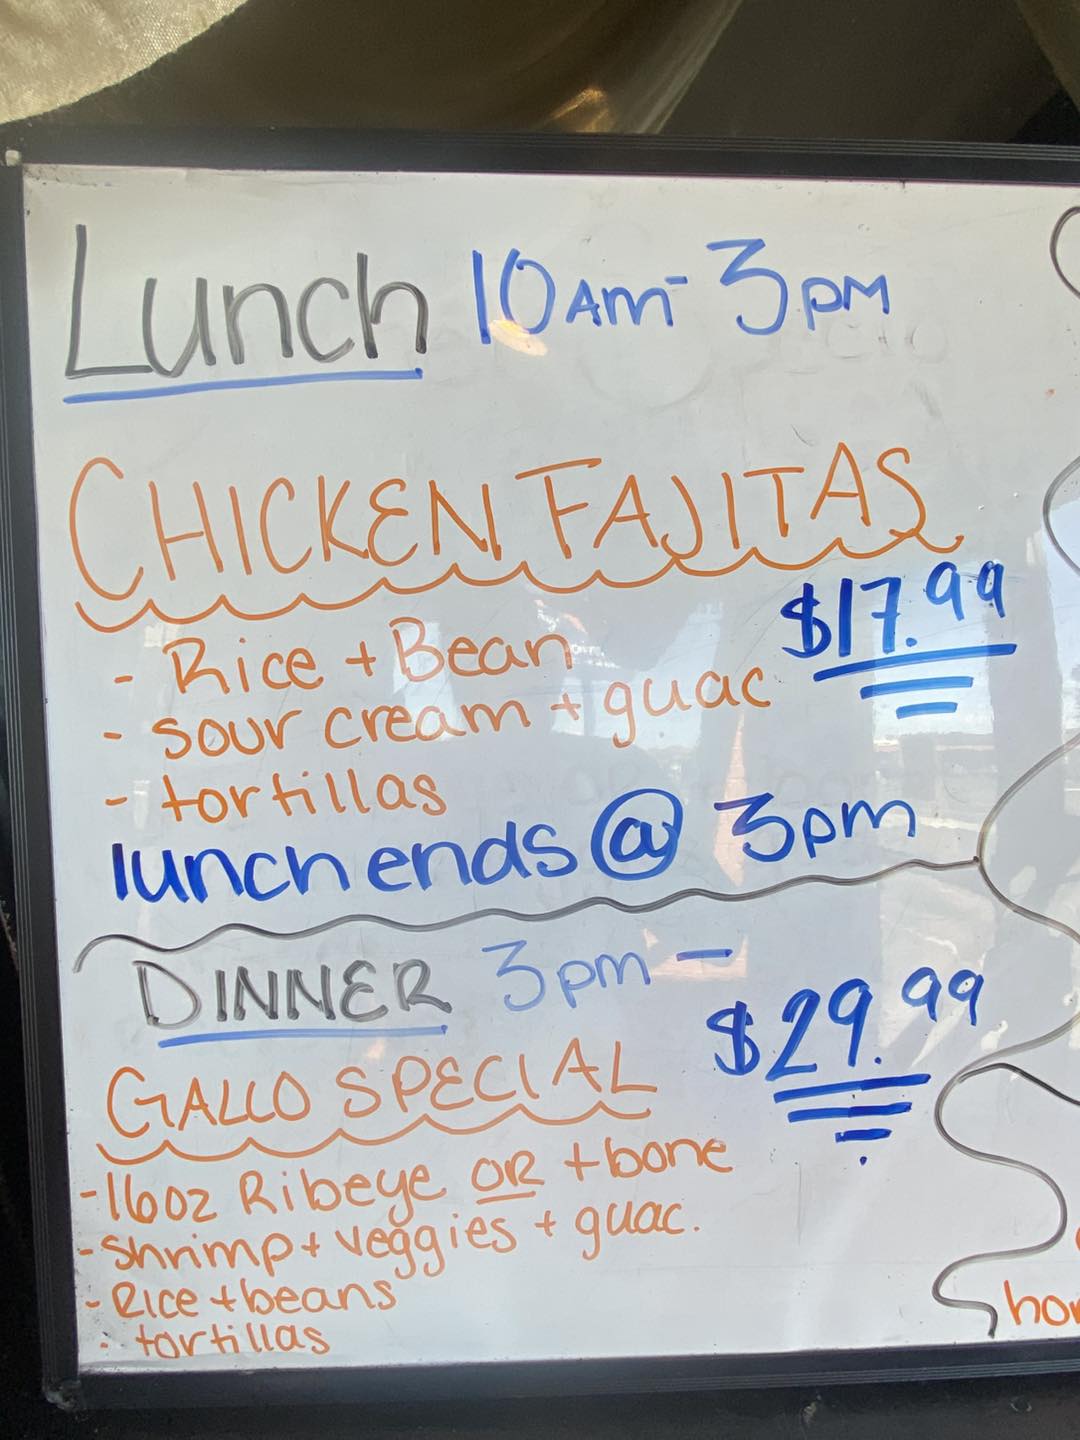 Lunch 10AM-3PM
CHICKEN FAJITAS
$17.99
- Rice + Bean
- sour cream + guac
- tortillas
lunch ends @ 3pm
DINNER 3pm -
$29.99
GALLO SPECIAL
-16oz Ribeye OR +bone
-shrimp + veggies + guac.
- Rice + beans
- tortillas